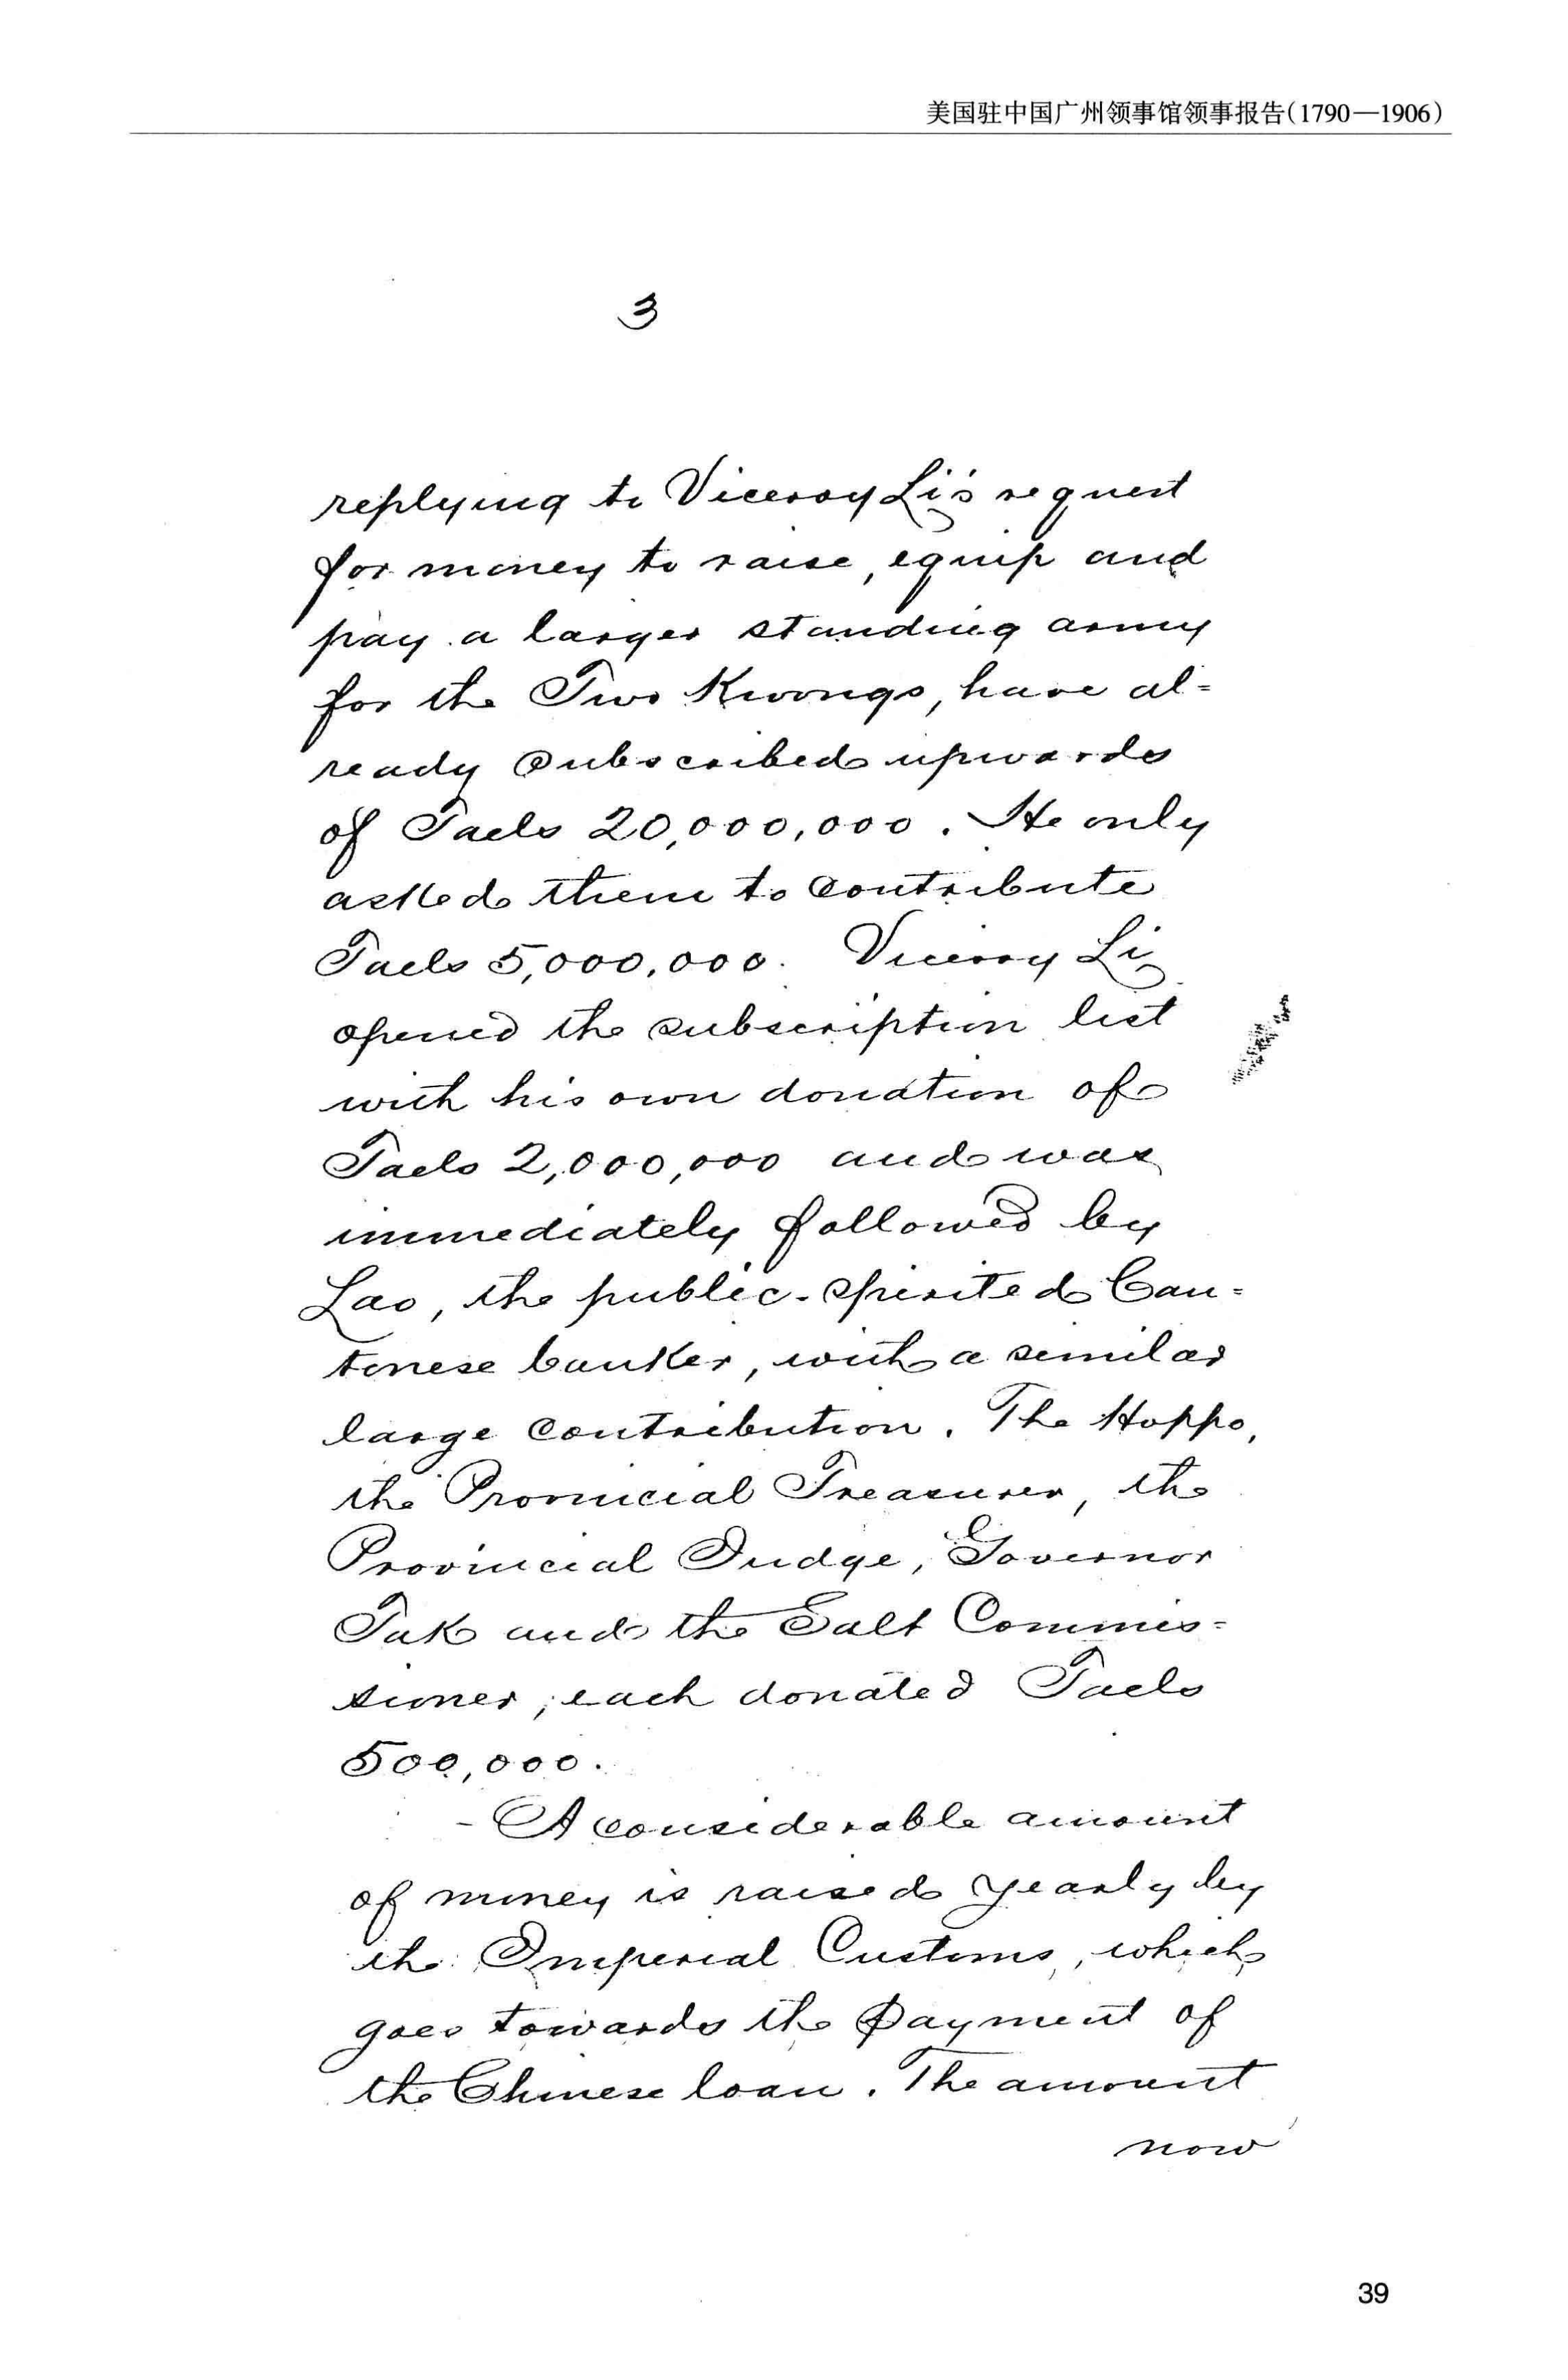 美国驻中国广州领事馆领事报告(1790—1906)
3
replying to Viceroy Li's request
for money to raise, equip and
pay a larger standing army
for the Two Kwongs, have al=
ready subscribed upwards
of Taels 20,000,000. He only
asked them to contribute
Taels 5,000,000. Viceroy Li
opened the subscription list
with his own donation of
Taels 2,000,000 and was
immediately followed by
Lao, the public-spirited Can=
tonese banker, with a similar
large contribution. The Hoppo,
the Provincial Treasurer, the
Provincial Judge, Governor
Tak and the Salt Commis=
sioner, each donated Taels
500,000.
- A considerable amount
of money is raised yearly by
the Imperial Customs, which
goes towards the payment of
the Chinese loan. The amount
now
39